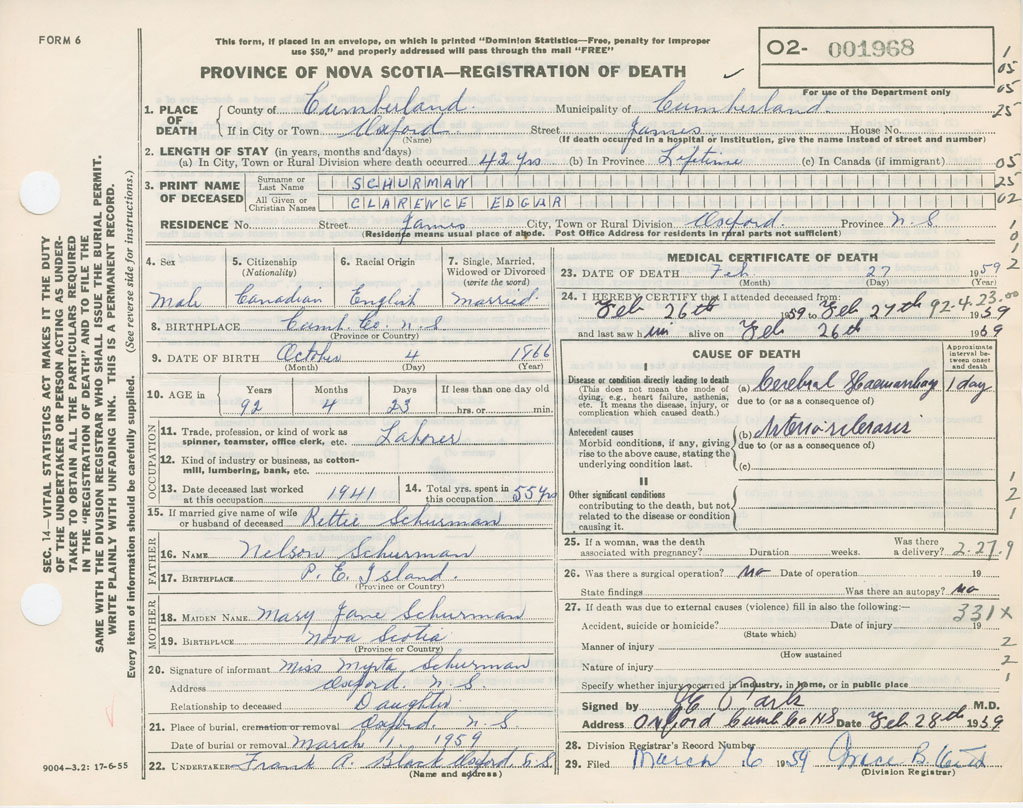 FORM 6
This form, if placed in an envelope, on which is printed "Dominion Statistics—Free, penalty for improper
use $50," and properly addressed will pass through the mail "FREE"
PROVINCE OF NOVA SCOTIA—REGISTRATION OF DEATH
02- 001968
For use of the Department only
1. PLACE OF DEATH
County of Cumberland Municipality of Cumberland
If in City or Town Oxford Street James House No.
(Name) (If death occurred in a hospital or institution, give the name instead of street and number)
2. LENGTH OF STAY (in years, months and days)
(a) In City, Town or Rural Division where death occurred 42 yrs (b) In Province Lifetime (c) In Canada (if immigrant)
3. PRINT NAME OF DECEASED
Surname or Last Name SCHURMAN
All Given or Christian Names CLARENCE EDGUR
RESIDENCE No. Street James City, Town or Rural Division Oxford. Province N.S
(Residence means usual place of abode. Post Office Address for residents in rural parts not sufficient)
4. Sex Male
5. Citizenship (Nationality) Canadian
6. Racial Origin English
7. Single, Married, Widowed or Divorced (write the word) Married
8. BIRTHPLACE Cumb. Co. N.S
(Province or Country)
9. DATE OF BIRTH October 4 1866
(Month) (Day) (Year)
10. AGE in Years 92 Months 4 Days 23 If less than one day old hrs. or min.
OCCUPATION
11. Trade, profession, or kind of work as spinner, teamster, office clerk, etc. Laborer
12. Kind of industry or business, as cotton-mill, lumbering, bank, etc.
13. Date deceased last worked at this occupation 1941
14. Total yrs. spent in this occupation 55 yrs
15. If married give name of wife or husband of deceased Rettie Schurman
FATHER
16. NAME Nelson Schurman
17. BIRTHPLACE P. E. Island.
(Province or Country)
MOTHER
18. MAIDEN NAME Mary Jane Schurman
19. BIRTHPLACE Nova Scotia
(Province or Country)
20. Signature of informant Miss Myrta Schurman
Address Oxford. N.S.
Relationship to deceased Daughter
21. Place of burial, cremation or removal Oxford. N.S
Date of burial or removal March 1. 1959
22. UNDERTAKER Frank A. Black Oxford,
(Name and address)
MEDICAL CERTIFICATE OF DEATH
23. DATE OF DEATH Feb. 27 1959
(Month) (Day) (Year)
24. I HEREBY CERTIFY that I attended deceased from:
Feb 26th 1959 to Feb 27th 1959
92-4-23.00
and last saw him alive on Feb 26th 1959
CAUSE OF DEATH
Approximate interval between onset and death
I
Disease or condition directly leading to death
(This does not mean the mode of dying, e.g., heart failure, asthenia, etc. It means the disease, injury, or complication which caused death.)
(a) Cerebral Haemorrhage 1 day
due to (or as a consequence of)
Antecedent causes
Morbid conditions, if any, giving rise to the above cause, stating the underlying condition last.
(b) Arteriosclerosis
due to (or as a consequence of)
(c)
II
Other significant conditions
contributing to the death, but not related to the disease or condition causing it.
25. If a woman, was the death associated with pregnancy? Duration weeks. Was there a delivery? 2-27-9
26. Was there a surgical operation? No Date of operation 19
State findings Was there an autopsy? No
27. If death was due to external causes (violence) fill in also the following:— 331X
Accident, suicide or homicide? Date of injury 19
(State which)
Manner of injury
(How sustained
Nature of injury
Specify whether injury occurred in industry, in home, or in public place
Signed by Park M.D.
Address Oxford Cumb Co NS Date Feb 28th 1959
28. Division Registrar's Record Number
29. Filed March 6 1959 Grace B.
(Division Registrar)
9004—3.2: 17-6-55
SEC. 14—VITAL STATISTICS ACT MAKES IT THE DUTY
OF THE UNDERTAKER OR PERSON ACTING AS UNDER-
TAKER TO OBTAIN ALL THE PARTICULARS REQUIRED
IN THE "REGISTRATION OF DEATH" AND TO FILE THE
SAME WITH THE DIVISION REGISTRAR WHO SHALL ISSUE THE BURIAL PERMIT.
WRITE PLAINLY WITH UNFADING INK. THIS IS A PERMANENT RECORD.
Every item of information should be carefully supplied. (See reverse side for instructions.)
1
05
05
25
05
25
02
1
0
1
2
1
2
1
1
2
2
1